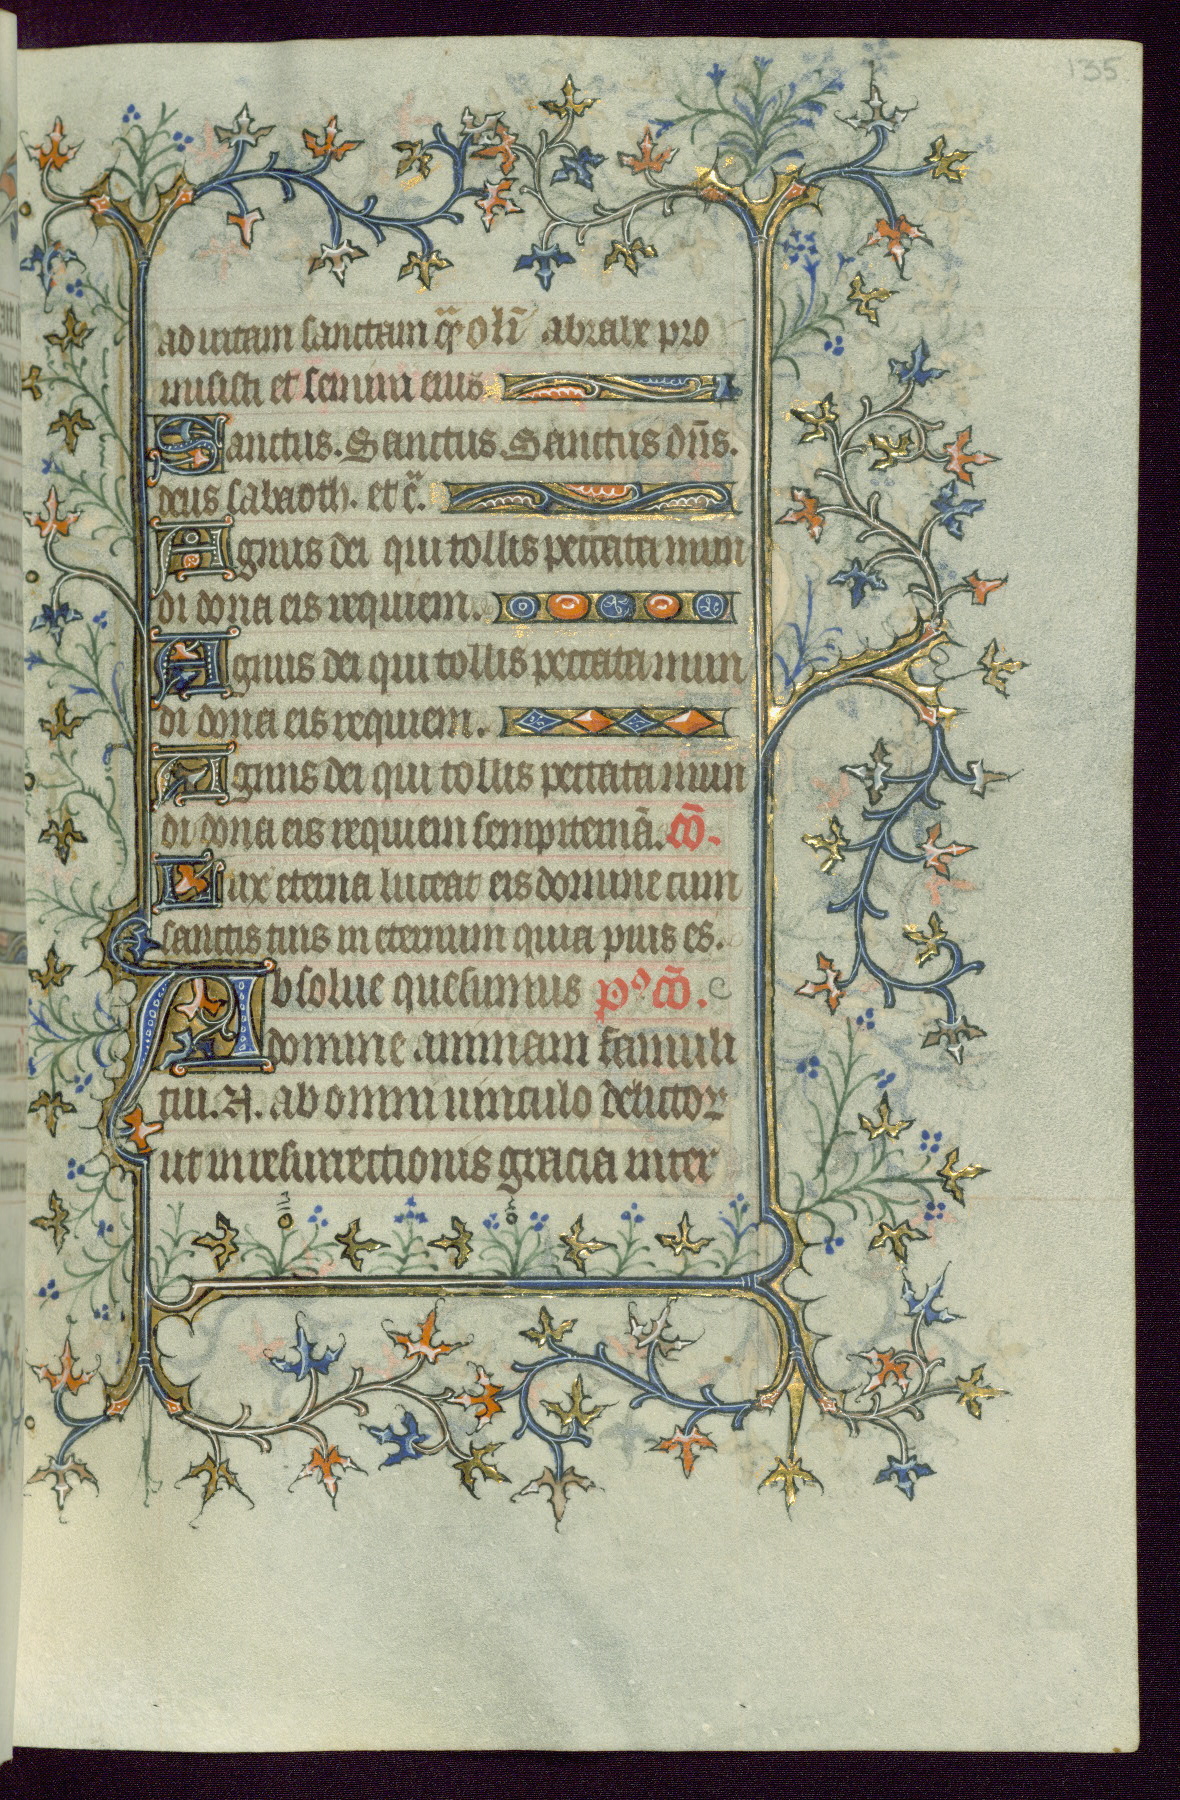 135
ad uitam sanctam q̃ oli᷑ abrahe pro
misisti et semini eius
Sanctus. Sanctus. Sanctus dñs.
deus sabaoth. et c̃.
Agnus dei qui tollis peccata mun
di dona eis requiem.
Agnus dei qui tollis peccata mun
di dona eis requiem.
Agnus dei qui tollis peccata mun
di dona eis requiem sempiternã. cõ.
Lux eterna luceat eis domine cum
sanctis tuis in eternum quia pius es.
Absolue quesumus pº cõ.
domine animam famuli
tui. N. ab omni uinculo delictoꝝ
ut in resurrectionis gracia inter